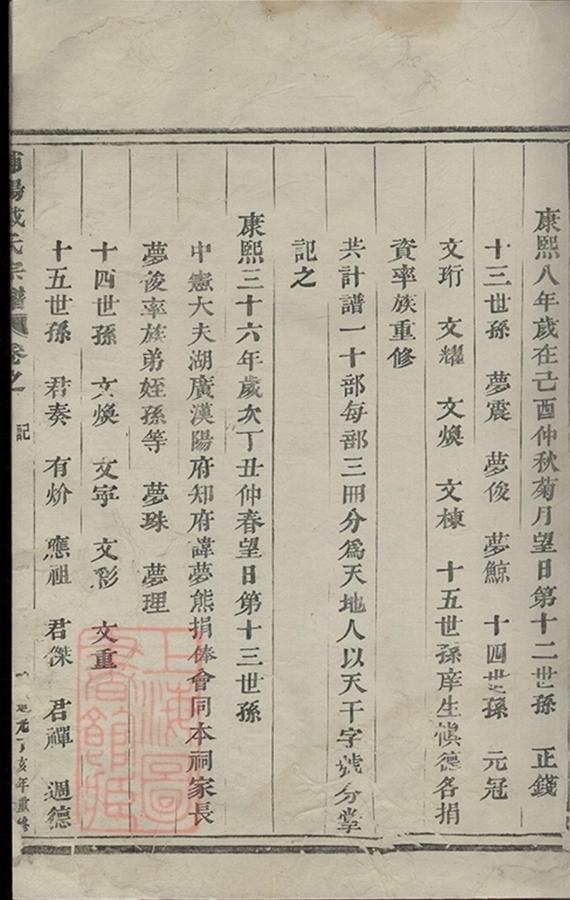 康熙八年歲在己酉仲秋菊月望日第十二世孫 正錢
十三世孫 夢震 夢俊 夢鯨 十四世孫 元冠
文珩 文耀 文煥 文棟 十五世孫庠生慎德各捐
資率族重修
共計譜一十部每部三冊分爲天地人以天干字號分掌
記之
康熙三十六年歲次丁丑仲春望日第十三世孫
中憲大夫湖廣漢陽府知府諱夢熊捐俸會同本祠家長
夢後率族弟姪孫等 夢珠 夢理
十四世孫 文煥 文寧 文彩 文重
十五世孫 君奏 有炌 應祖 君傑 君禪 迴德
陽戴氏宗譜 卷之一 記 一 丁亥年重修
上海圖書館藏